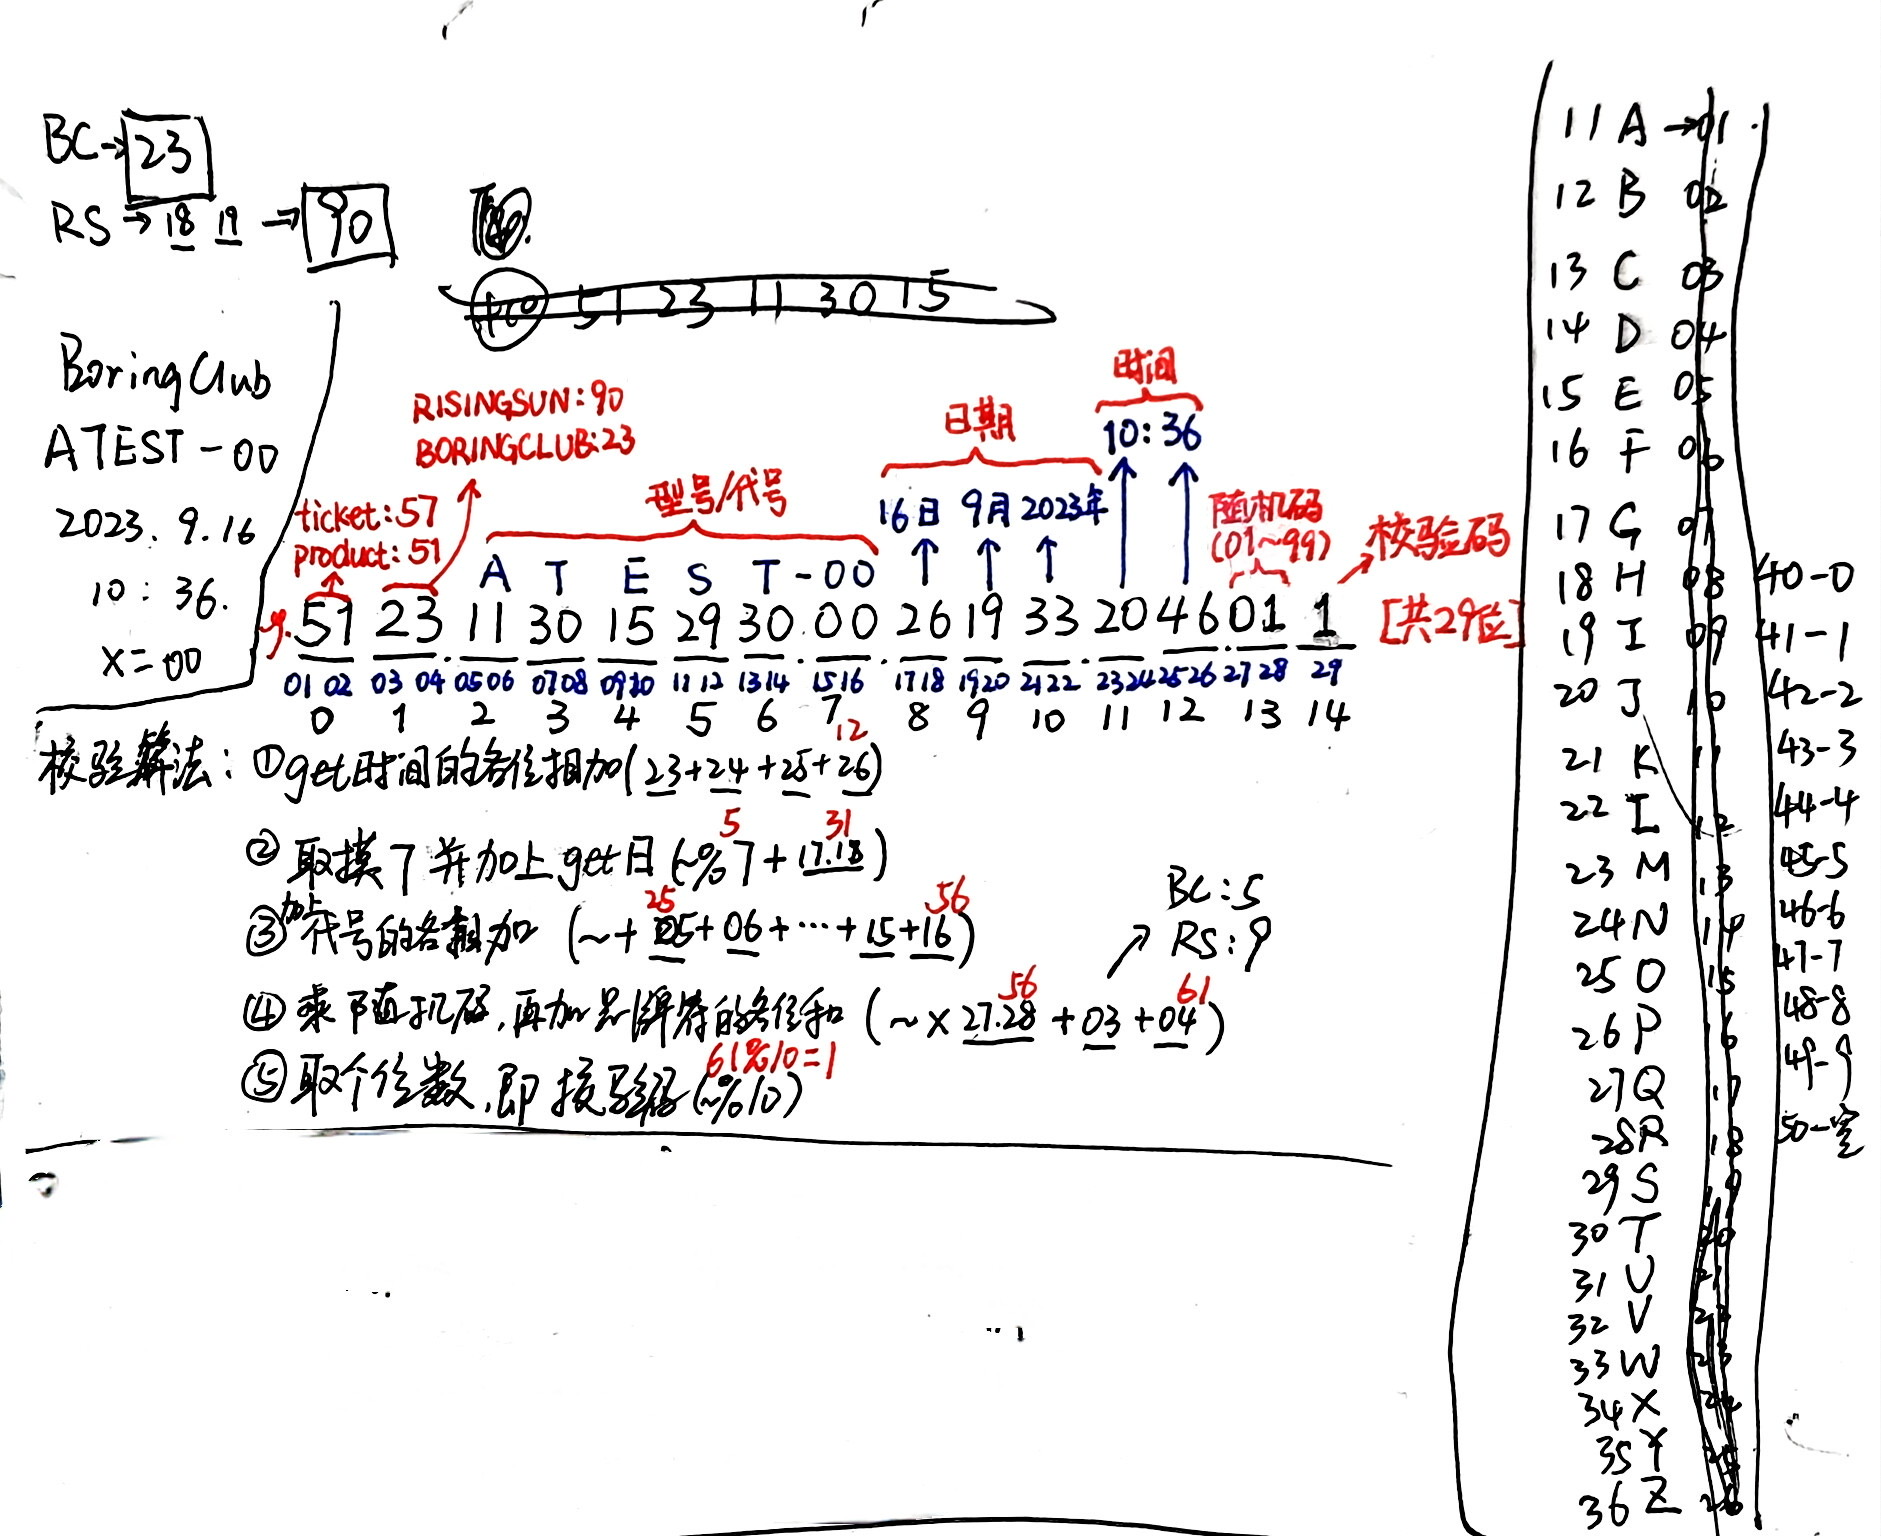 BC→ 23
RS → 18 19 → 90
51 23 11 30 15
BoringClub
ATEST-00
2023.9.16
10:36.
X=00
RISINGSUN:90
BORINGCLUB:23
ticket:57
product:51
型号/代号
日期
时间
10:36
16日 9月 2023年
随机码
(01~99)
校验码
A T E S T-00
51 23 11 30 15 29 30 00 26 19 33 20 46 01 1
[共29位]
01 02 03 04 05 06 07 08 09 10 11 12 13 14 15 16 17 18 19 20 21 22 23 24 25 26 27 28 29
0 1 2 3 4 5 6 7 8 9 10 11 12 13 14
12
校验算法: ①get时间的各位相加(23+24+25+26)
5 31
②取摸7并加上get日(~%7+17.18)
25 56
③加上代号的各相加 (~+05+06+…+15+16)
BC:5
RS:9
56 61
④乘随机码,再加品牌符的各位和 (~×27.28+03+04)
61%10=1
⑤取个位数,即校验码(~%10)
11 A →01
12 B 02
13 C 03
14 D 04
15 E 05
16 F 06
17 G 07
18 H 08
19 I 09
20 J 10
21 K 11
22 L 12
23 M 13
24 N 14
25 O 15
26 P 16
27 Q 17
28 R 18
29 S 19
30 T 20
31 U 21
32 V 22
33 W 23
34 X 24
35 Y 25
36 Z 26
40-0
41-1
42-2
43-3
44-4
45-5
46-6
47-7
48-8
49-9
50-空